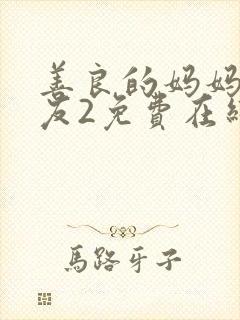 善良的妈妈
友2免費在
馬路牙子